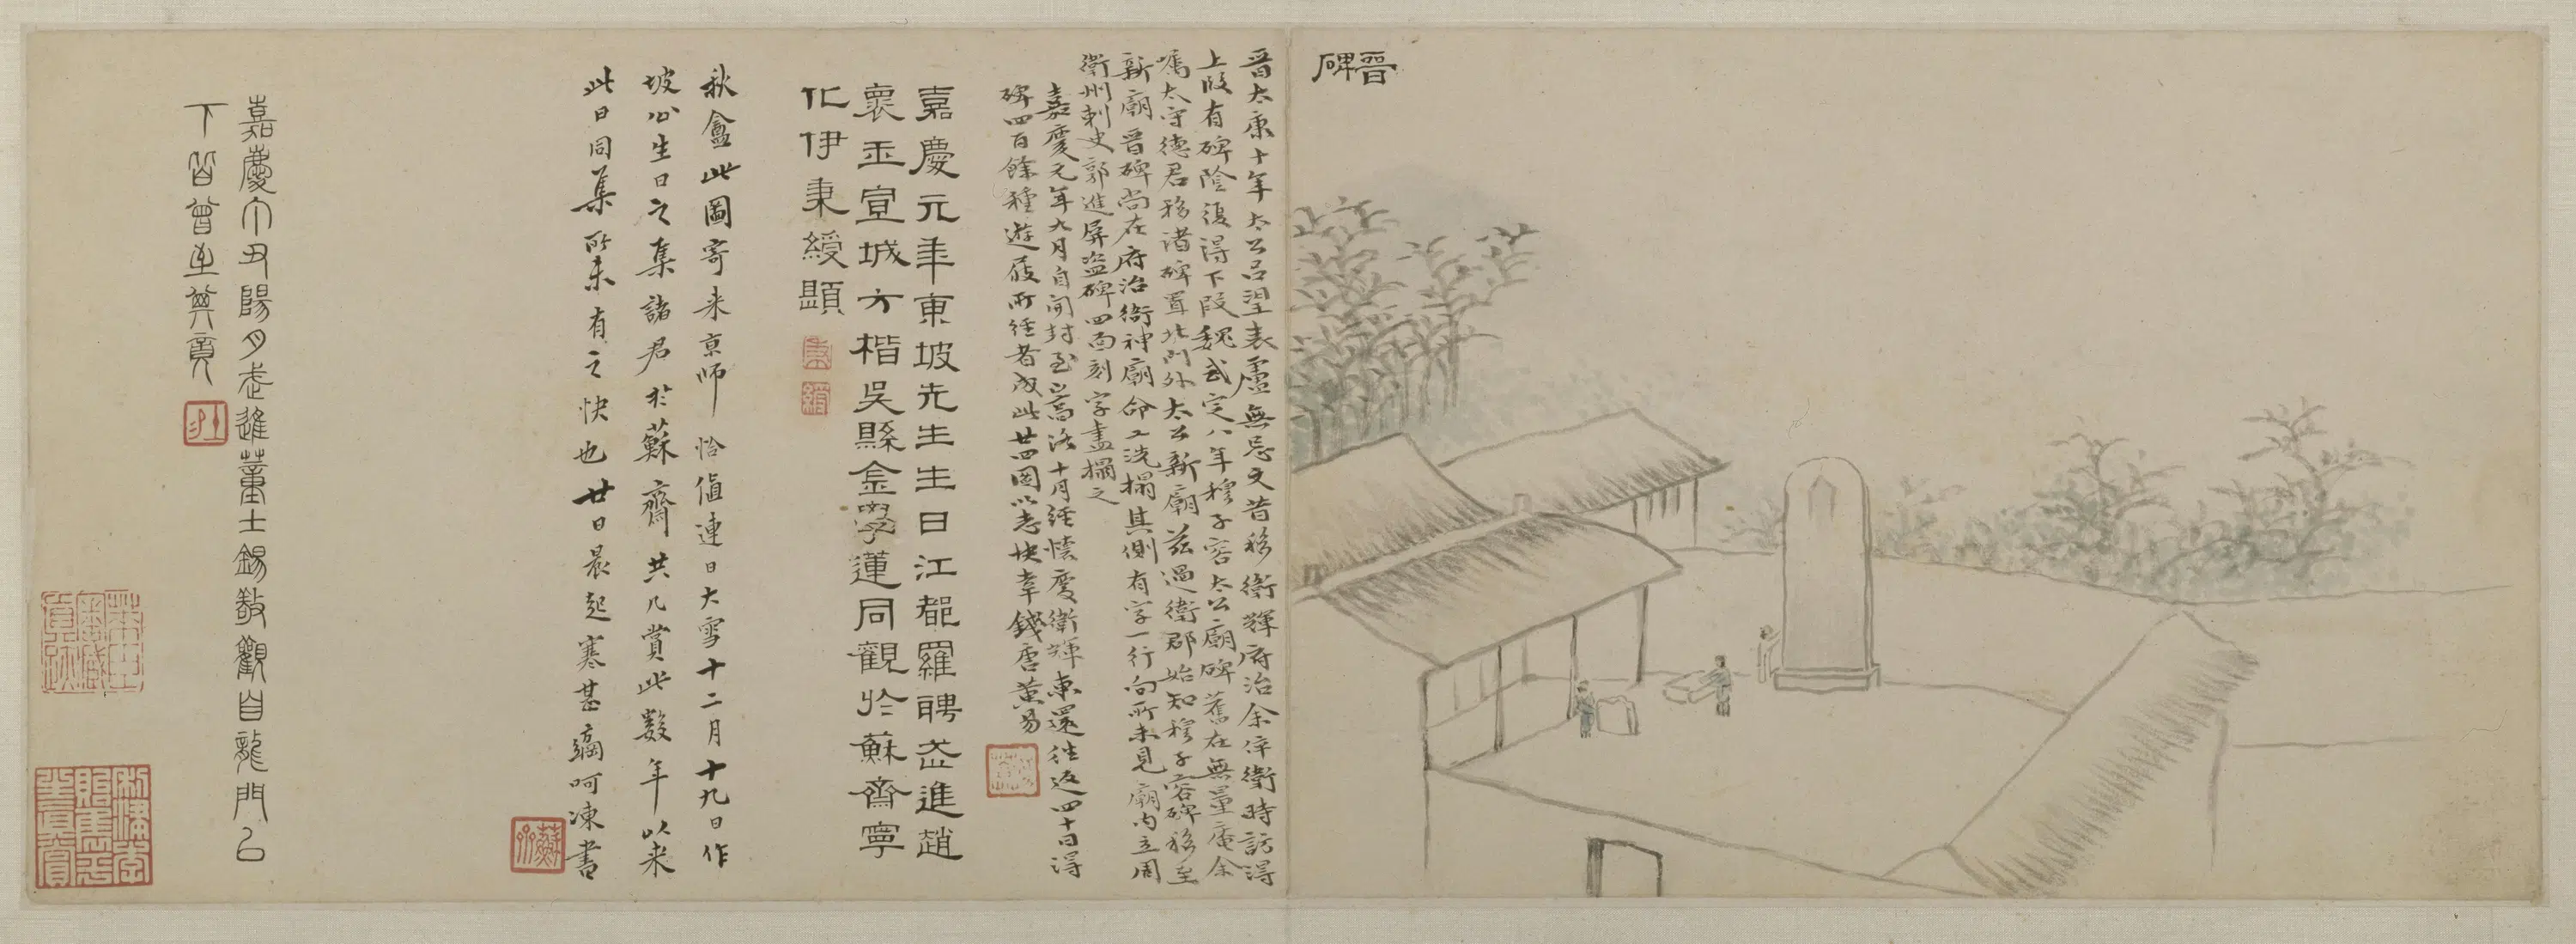 晋碑
晋太康十年太公吕望表盧無忌文昔移衛輝府治余倅衛時訪得
上段有碑陰復得下段魏武定八年穆子容太公廟碑舊在無量庵余
嘱太守德君移諸碑置北門外太公新廟兹過衛郡始知穆子容碑移至
新廟晋碑尚在府治衙神廟命工洗搨其側有字一行向所未見廟内立周
衛州刺史郭進屏盗碑四面刻字盡搨之
嘉慶元年九月自開封至嵩洛十月經懷慶衛輝東還往返四十日得
碑四百餘種遊屐所經者成此廿四圖以志快幸錢唐黄易
嘉慶元年東坡先生生日江都羅聘武進趙
褱玉宣城方楷吳縣金學蓮同觀於蘇齋寧
化伊秉綬題
秋盦此圖寄来京師恰值連日大雪十二月十九日作
坡公生日之集諸君於蘇齋共几賞此數年以来
此日同集所未有之快也廿日晨起寒甚綱呵凍書
嘉慶丁丑陽月武進董士錫敬觀自龍門已
下皆曾至其竟